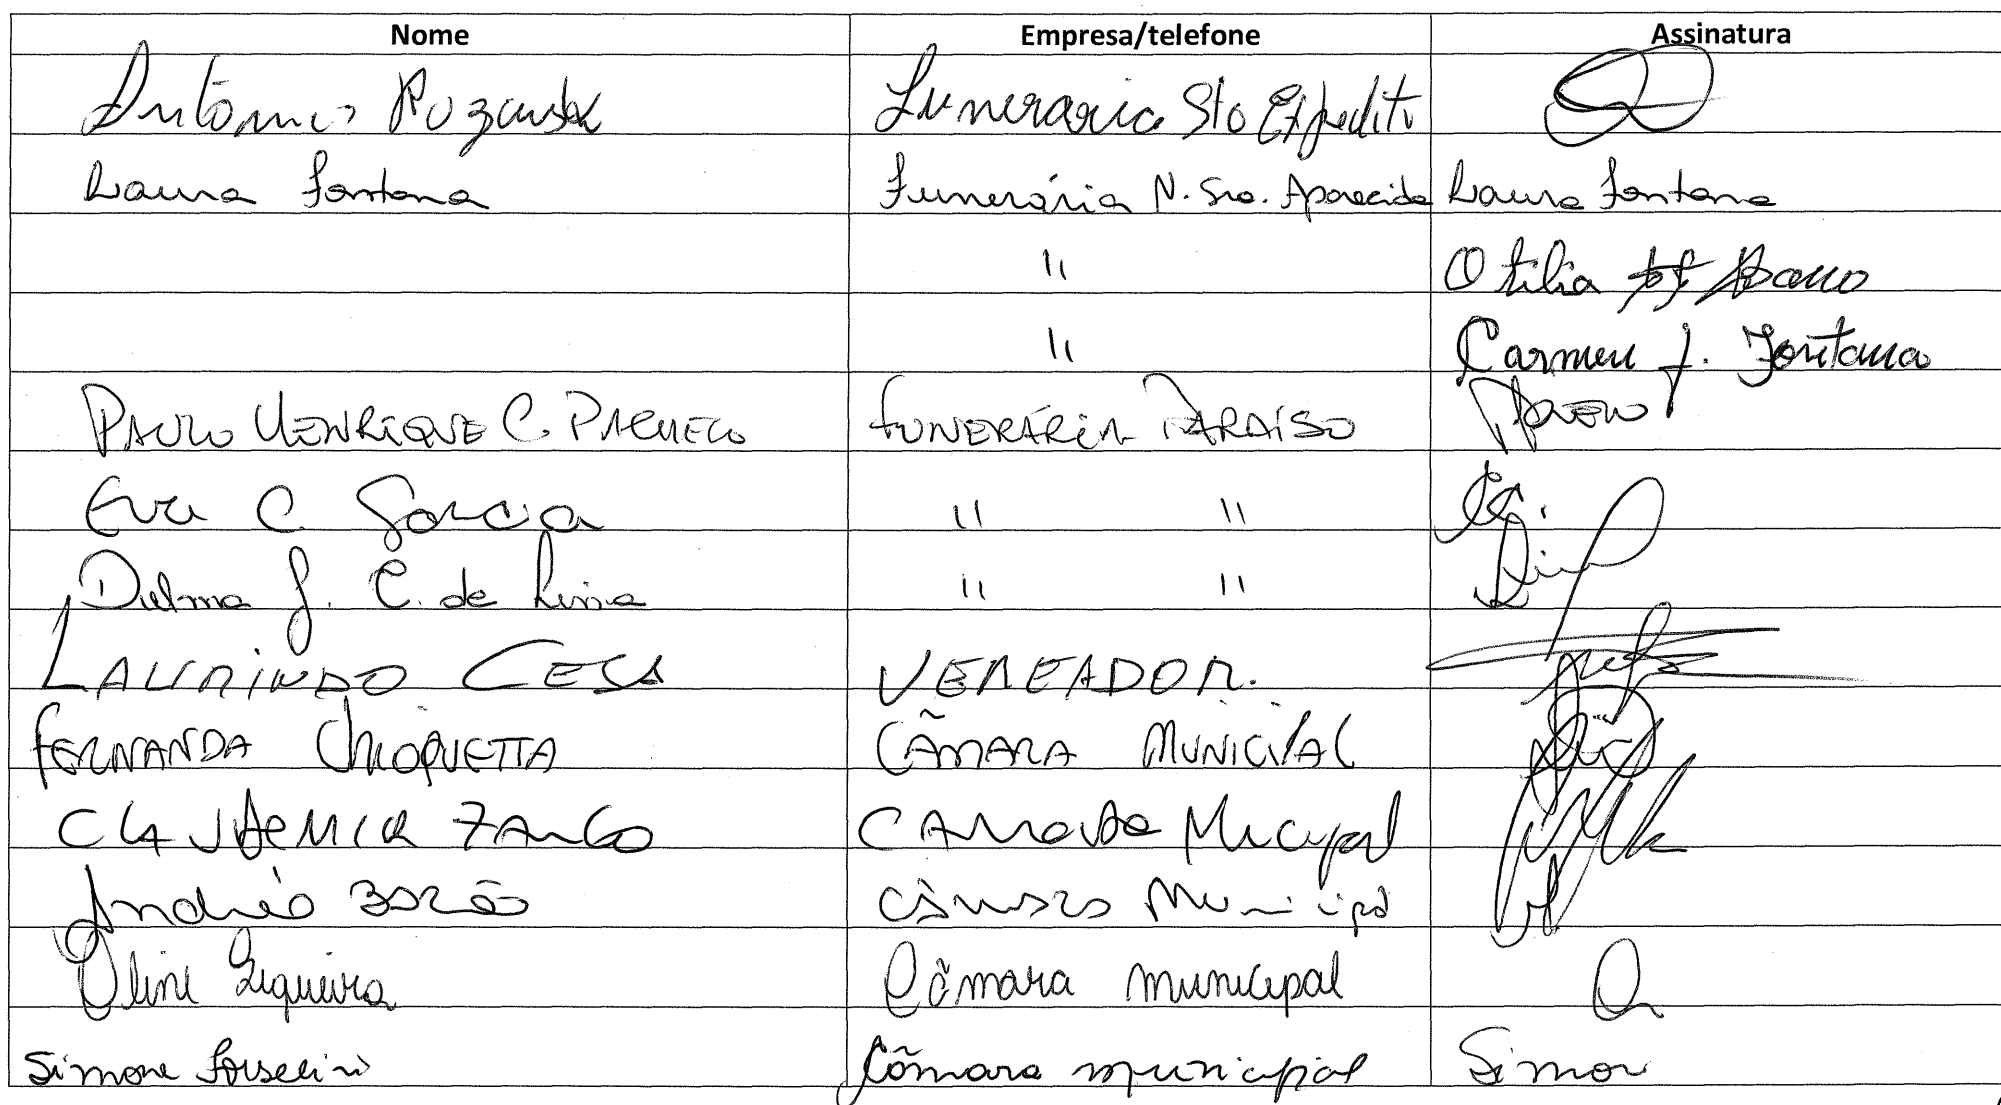 Nome Empresa/telefone Assinatura
Antônio Funeraria Sto Expedito
Laura Fontana Funerária N. Sra. Aparecida Laura Fontana
" Otilia
" Carmen J. Fontana
PAULO HENRIQUE C. PACHECO FUNERÁRIA PARAÍSO
Eva C. Garcia " "
Delma J. C. de Lima " "
LAURINDO CESA VEREADOR.
FERNANDA CHIOQUETTA CÂMARA MUNICIPAL
CLAUDEMIR ZANCO
Câmara Municipal
Aline Siqueira Câmara municipal
Simone Câmara municipal Simone